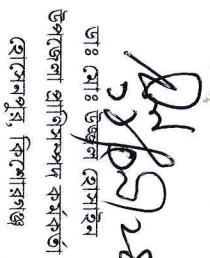 ডাঃ মোঃ উজ্জ্বল হোসাইন
উপজেলা প্রাণিসম্পদ কর্মকর্তা
হোসেনপুর, কিশোরগঞ্জ